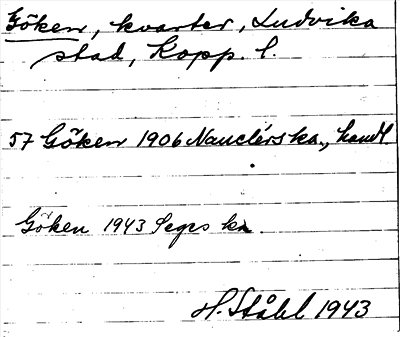 Göken, kvarter, Ludvika
stad, Kopp. l.
57 Göken 1906 Nauclérs ka., handl.
Göken 1943 Segrs ka
H. Ståhl 1943